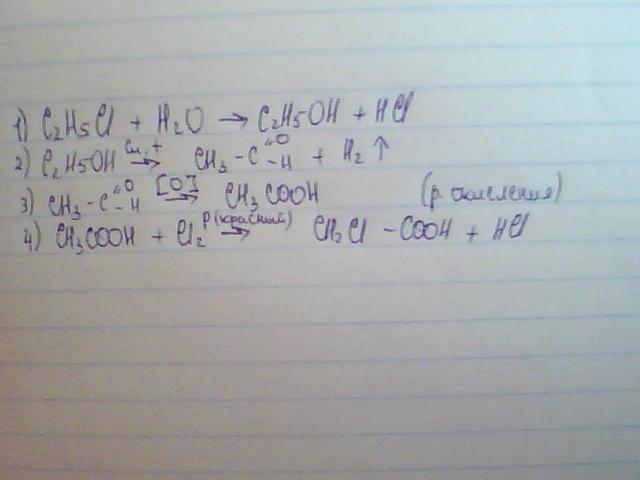 1) C₂H₅Cl + H₂O → C₂H₅OH + HCl
2) C₂H₅OH Cu, t → CH₃ - C =O -H + H₂ ↑
3) CH₃ - C =O -H [O] → CH₃COOH (р. окисления)
4) CH₃COOH + Cl₂ P(красный) → CH₂Cl - COOH + HCl